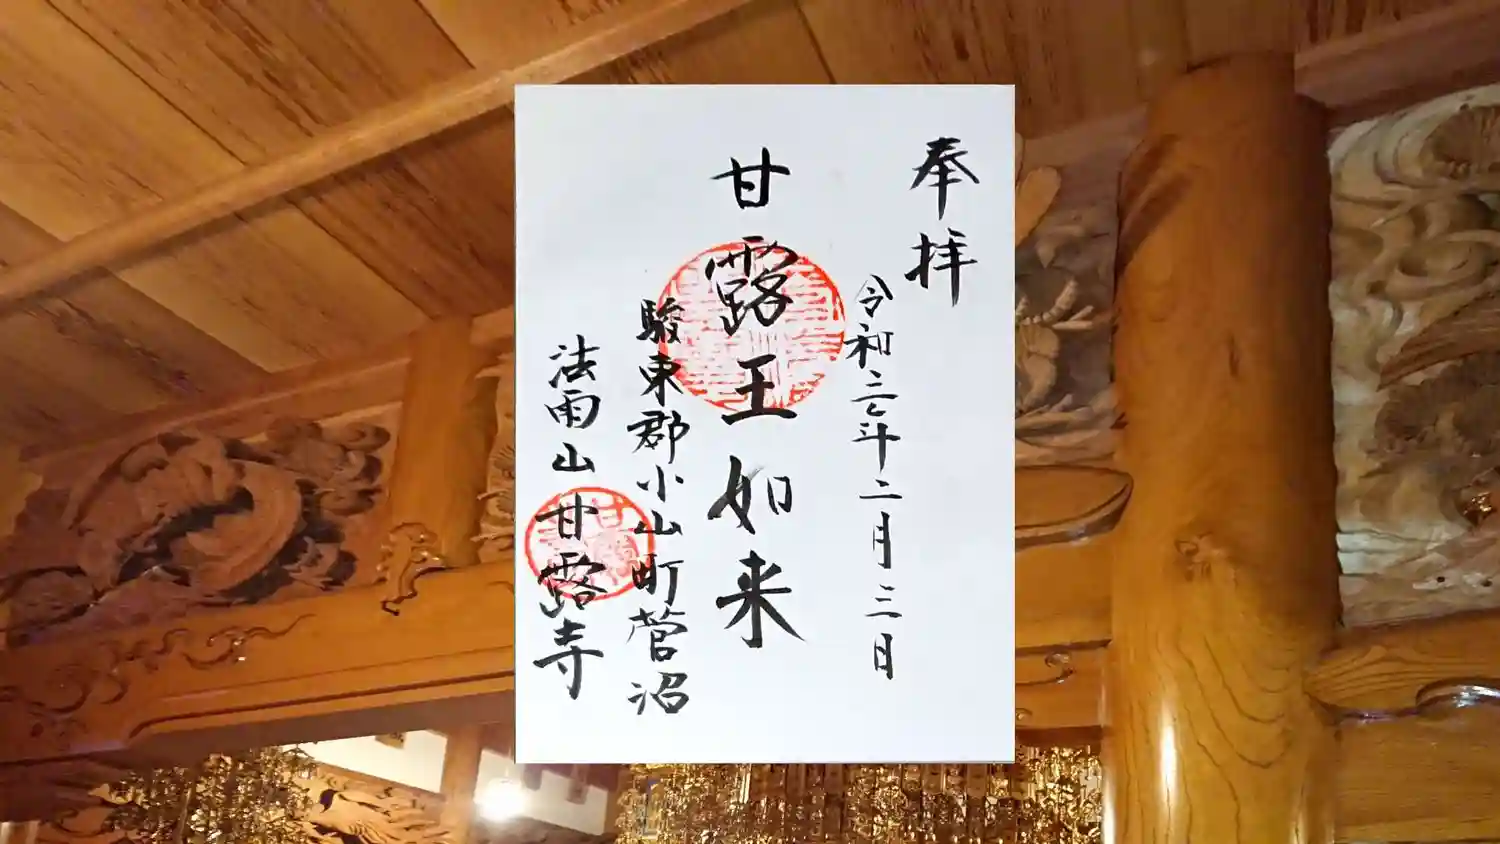 奉拝
令和二年二月三日
甘露王如来
駿東郡小山町菅沼
法雨山甘露寺